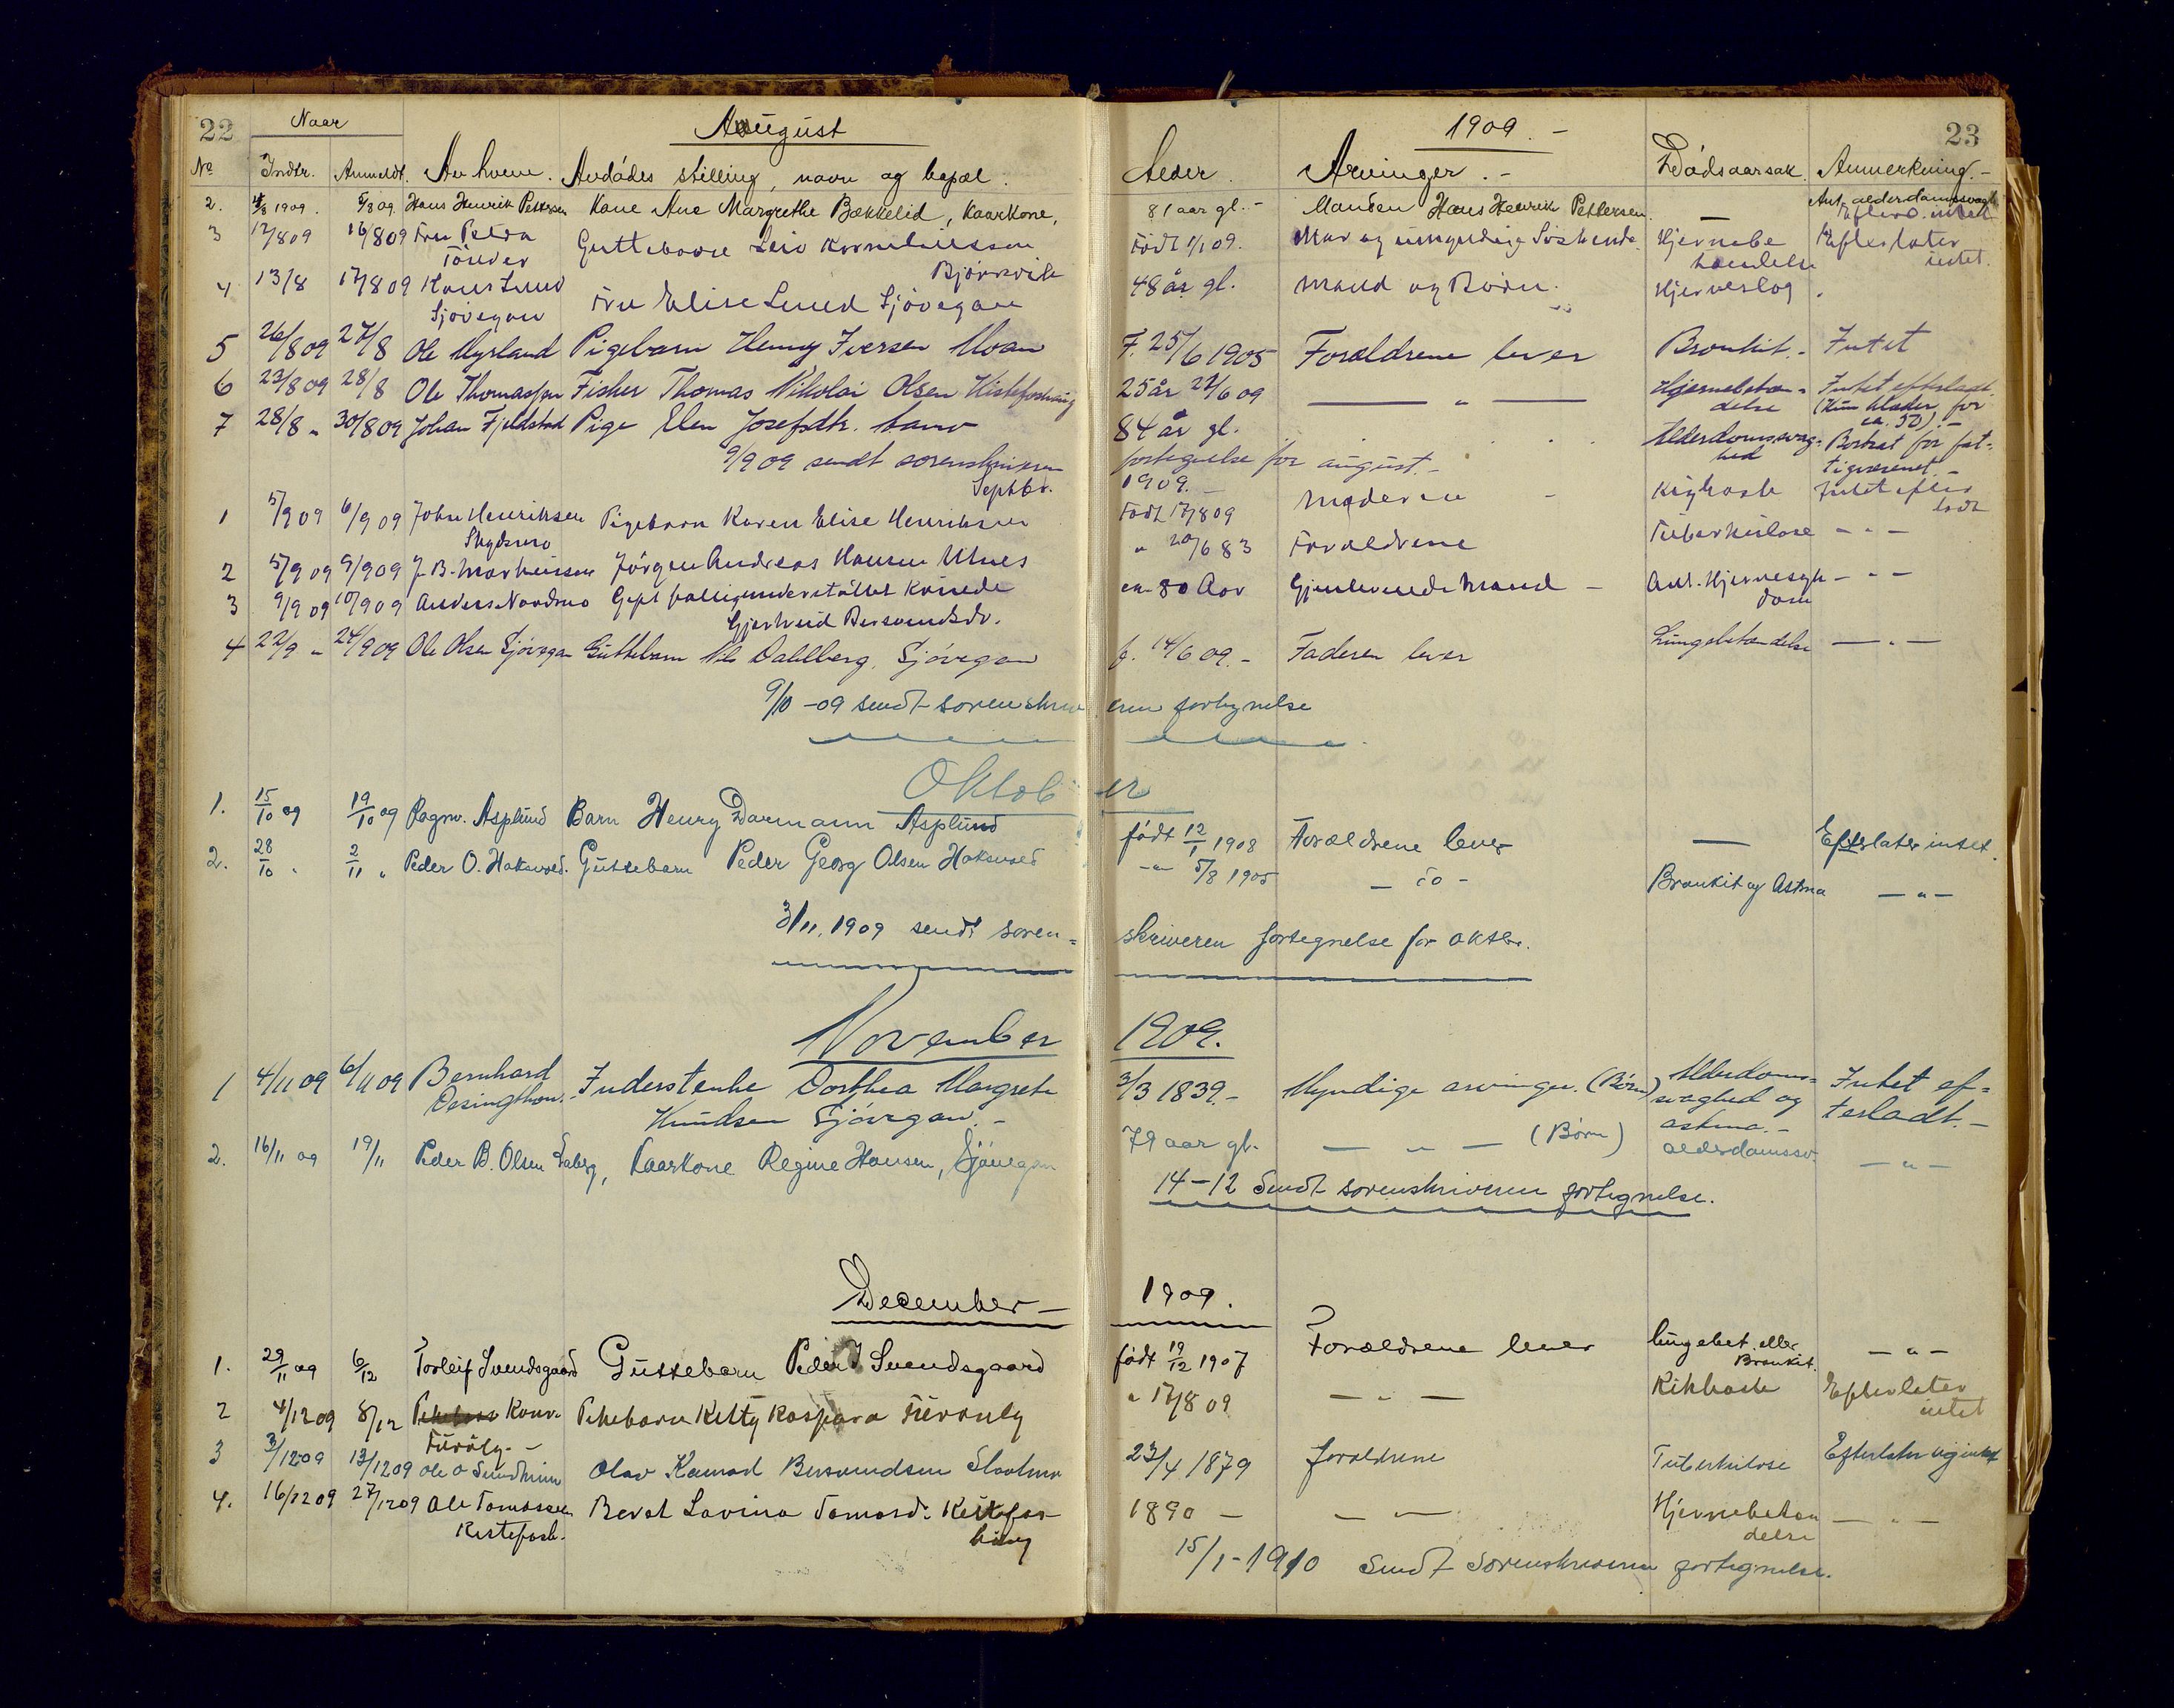 22 Naar August 1909. - 23
No Indtr. Anmeldt. Av hvem. Avdødes stilling, navn og bopæl. Alder. Arvinger. - Dødsaarsak. Anmerkning. -
2. 4/8 1909. 5/8 09 Hans Henrik Pettersen Kone Ane Margrethe Bækkelid, Kaarkone, 81 aar gl. - Manden Hans Henrik Pettersen. — Ant. alderdomssvagh.
Efterl. intet
3 12/8 09 16/8 09 Fru Petra Guttebarn Leif Kornelinssen Født 1/1 09. Mor og umyndige Søskende Hjernebe Efterlater
Bjørkvik tændelse intet.
4 13/8 17/8 09 Hans Lund Fru Elise Lund Sjøvegan 48 år gl. Mand og Børn. Hjerneslag
Sjøvegan
5 26/8 09 27/8 Ole Myrland Pigebarn Henny Iversen Moan F. 25/6 1905 Forældrene lever Bronkit. - Intet
6 23/8 09 28/8 Ole Thomassen Fisker Thomas Nikolai Olsen Kistefosbring 25 år 22/6 09 — " — Hjernebetæn- Intet efterladt
delse (Kun klæder for
ca. 50). -
7 28/8 " 30/8 09 Johan Fjeldstad Pige Elen Josefsdtr. 84 år gl. Alderdomssvag- Bortsat for fat-
hed tigvæsenet. -
9/9 09 sendt sorenskriveren fortegnelse for august. -
Septbr. 1909. -
1 5/9 09 6/9 09 John Henriksen Pigebarn Karen Elise Henriksen Født 17/8 09 Moderen - Kighoste Intet efter
ladt
2 5/9 09 9/9 09 J. B. Markussen Jørgen Andreas Hansen Ulnes " 20/6 83 Forældrene Tuberkulose - " -
3 9/9 09 10/9 09 Anders Nordmo Gift fattigunderstøttet Kvinde ca. 80 Aar Gjenlevende Mand - Ant. Hjernesyk - " -
Gjertrud Bersvendsdr. dom
4 22/9 " 24/9 09 Ole Olsen Sjøvegan Guttebarn Nils Dahlberg, Sjøvegan f. 14/6 09. - Faderen lever Lungebetændelse — " —
9/10 - 09 sendt sorenskriveren fortegnelse
Oktober
1. 15/10 09 19/10 09 Ragnv. Asplund Barn Henry Darmann Asplund født 12/1 1908 Forældrene lever — Efterlater intet.
2. 28/10 " 2/11 " Peder O. Haksved. Guttebarn Peder Georg Olsen Haksved - " - 5/8 1905 - do - Bronkit og Astma - " -
3/11. 1909 sendt soren= skriveren fortegnelse for oktbr.
November 1909.
1 4/11 09 6/11 09 Bernhard Inderstenhe Dorthea Margrete 3/3 1839. - Myndige arvinger. (Børn) Alderdoms= Intet ef=
Knudsen Sjøvegan. - svaghed og terladt. -
astma. -
2. 16/11 09 19/11 Peder B. Olsen Enberg, Kaarkone Regine Hansen, Sjøvegan 79 aar gl. — " — (Børn) alderdomssv. — " —
14-12 Sendt sorenskriveren fortegnelse.
December - 1909.
1. 29/11 09 6/12 Torleif Svendsgaard Guttebarn Peder T Svendsgaard født 19/12 1907 Forældrene lever lungebet. eller - " -
Bronkit.
2 4/12 09 8/12 Konr. Pikebarn Kitty Kaspara Furøuly " 17/8 09 — " — Kikhoste Efterlater
Furøly. - intet
3 3/12 09 13/12 09 Ole O Sundheim Olav Konrad Bersvendsen 23/4 1879 forældrene Tuberkulose Efterlater
4. 16/12 09 27/12 09 Ole Tomassen Beret Lovina Tomasd. Kistefos- 1890 - — " — Hjernebetæn — " —
Kistefosb. bring delse
15/1 - 1910 Sendt sorenskriveren fortegnelse.